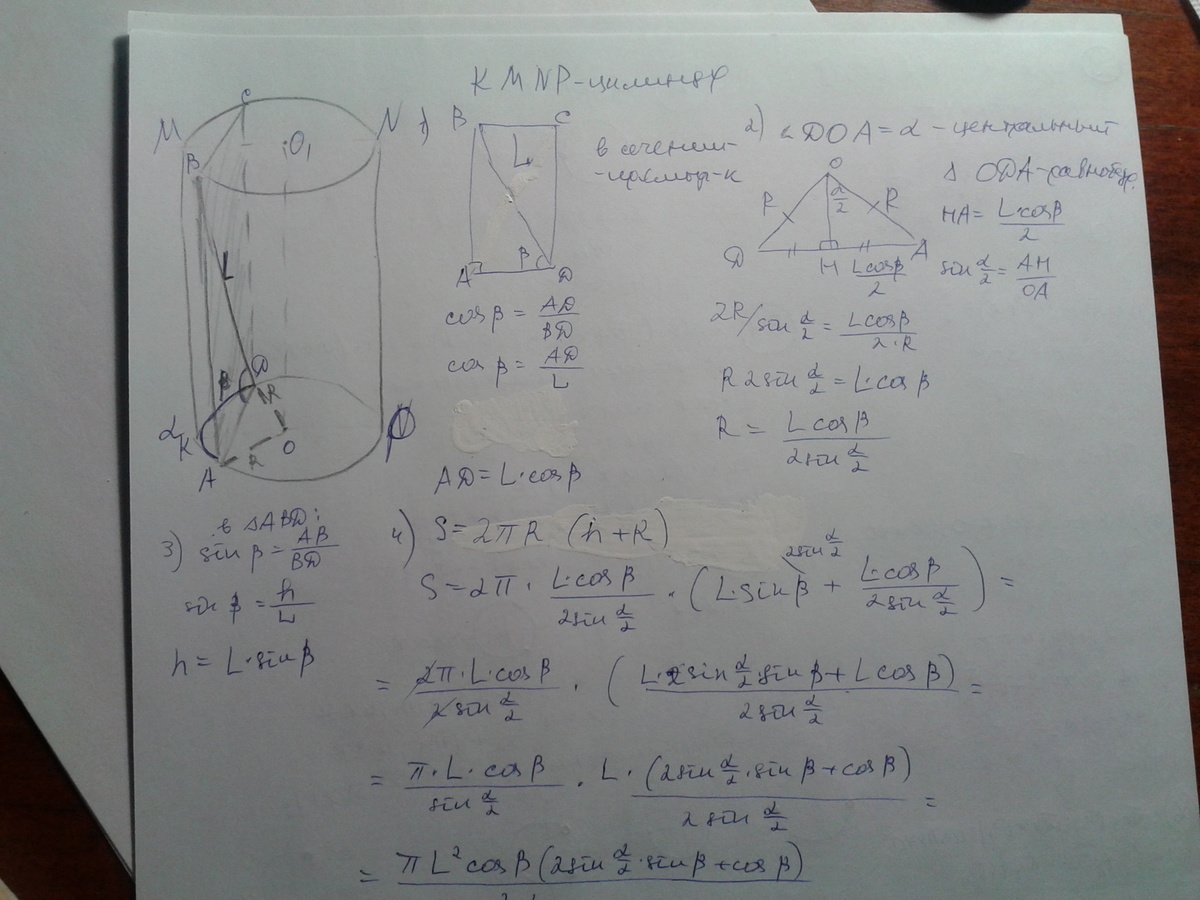 KMNP-цилиндр
M
C
N
B
O₁
L
β
D
R
α
K
O
P
A
R
1)
B
C
L
β
A
D
в сечении-
-прямоуг-к
cos β = AD/BD
cos β = AD/L
AD = L·cos β
2) ∠DOA = α - центральный
Δ ODA-равнобедр.
O
R
α/2
R
D
H
A
Lcosβ/2
HA = L·cosβ/2
sin α/2 = AH/OA
2R/ sin α/2 = Lcosβ/2·R
R 2sin α/2 = L·cos β
R = Lcosβ/2sin α/2
3) в ΔABD:
sin β = AB/BD
sin β = h/L
h = L·sin β
4) S = 2πR (h+R)
S = 2π · L·cos β/2sin α/2 · (L·sin β + L·cos β/2sin α/2) =
2sin α/2
= 2π·L·cos β/2sin α/2 · (L·2sin α/2·sin β + L cos β)/2sin α/2 =
= π·L·cos β/sin α/2 · L·(2sin α/2·sin β + cos β)/2 sin α/2 =
= πL² cos β (2sin α/2·sin β + cos β)